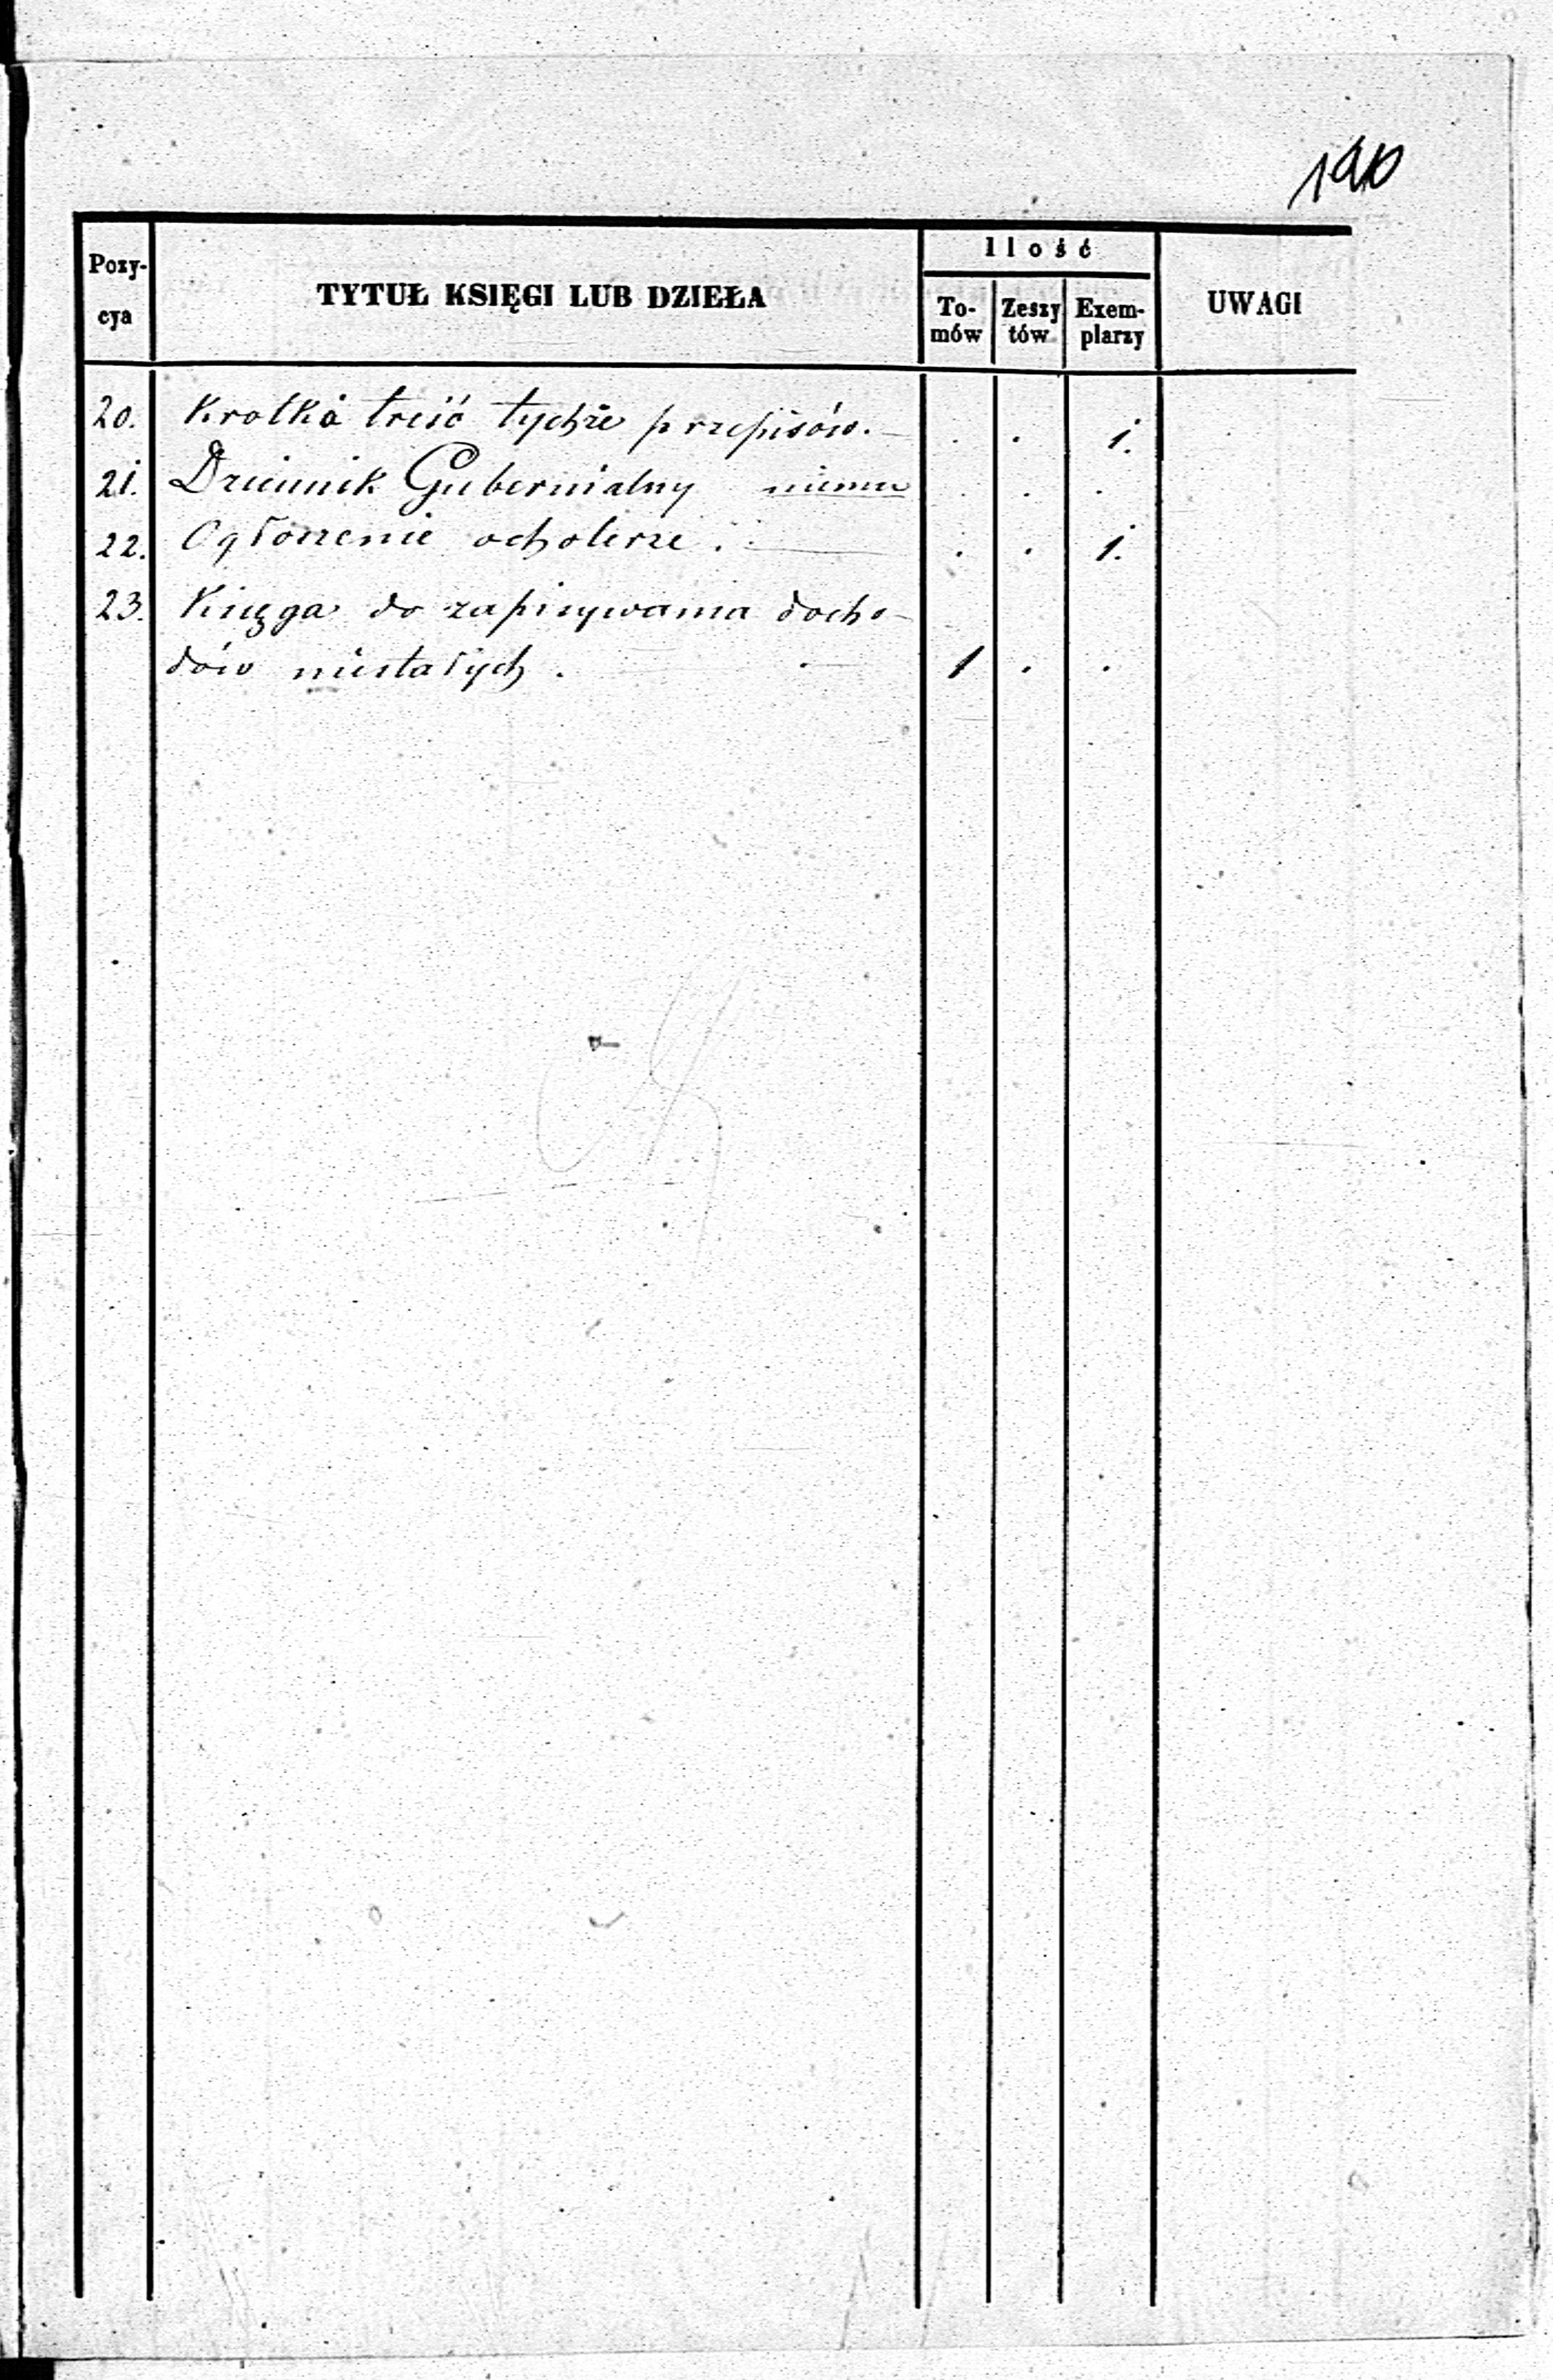 190
Pozy-
cya
TYTUŁ KSIĘGI LUB DZIEŁA
Ilość
To-
mów
Zeszy
tów
Exem-
plarzy
UWAGI
20. Krotka treść tychże przepisów. — . . 1.
21. Dziennik Gubernialny niema . . .
22. Ogłoszenie o cholerze . — . . 1.
23. Księga do zapisywania docho-
dów niestałych . — 1 . .